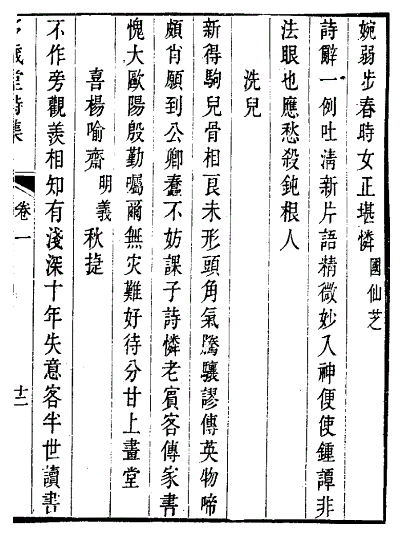 婉弱步春時女正堪憐國仙芝
詩辭一例吐清新片語精微妙入神便使鍾譚非
法眼也應愁殺鈍根人
洗兒
新得駒兒骨相良未形頭角氣騰驤謬傳英物啼
頗肖願到公卿蠢不妨課子詩憐老賓客傳家書
愧大歐陽殷勤囑爾無灾難好待分甘上畫堂
喜楊喻齋明義秋捷
不作旁觀羨相知有淺深十年失意客半世讀書
堂詩集
卷一
十二